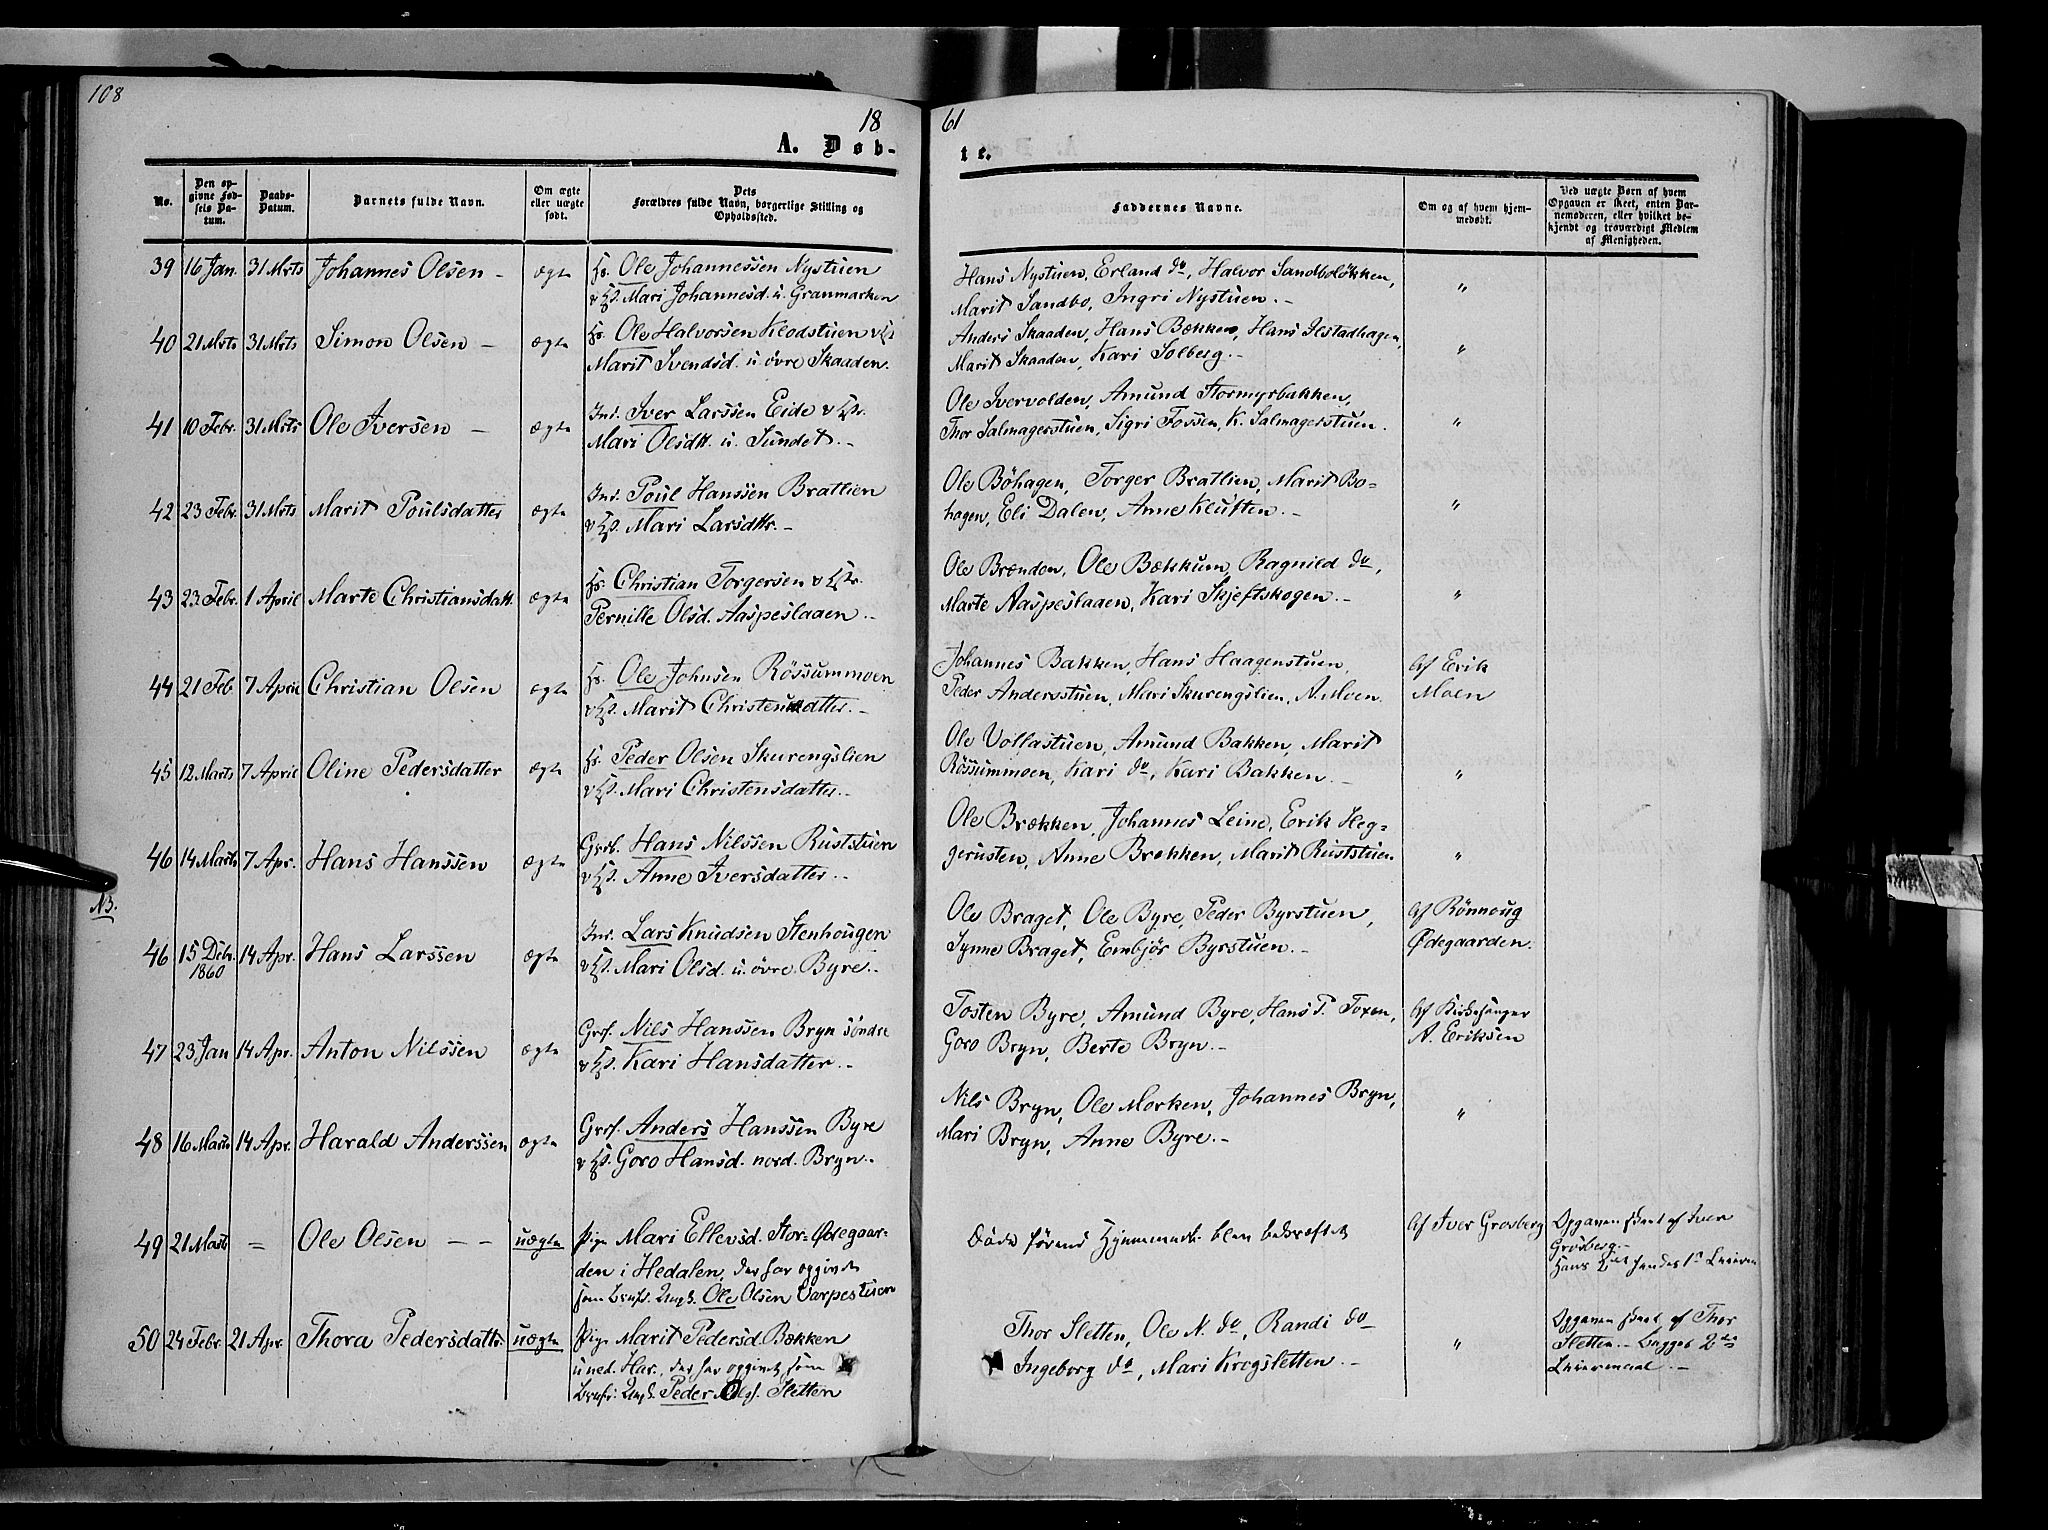 108
18 61
A. Döb-
te.
No.
Den op-
givne Fød-
sels Da-
tum.
Daabs-
Datum.
Barnets fulde Navn.
Om ægte
eller uægte
født.
Dets
Forældres fulde Navn, borgerlige Stilling og
Opholdssted.
Faddernes Navne.
Om og af hvem hjem-
medøbt.
Ved uægte Børn af hvem
Opgaven er skeet, enten Bar-
nemoderen, eller hvilket be-
kjendt og troværdigt Medlem
af Menigheden.
39 16 Jan. 31 Mrts Johannes Olsen - ægte
Ole Johannessen Nystuen
Mari Johannesd. u. Granmarken
Hans Nystuen, Erland do, Halvor Sandboløkken,
Marit Sandbo, Ingri Nystuen. -
"
40 21 Mrts 31 Mrts Simon Olsen - ægte
Ole Halvorsen Klodstuen
Marit Svendsd. u. övre Skaaden.
Anders Skaaden, Hans Bækken, Hans Ilstadhagen,
Marit Skaaden, Kari Solberg. -
"
41 10 Febr. 31 Mrts Ole Iversen - ægte
Ind. Iver Larssen Eide
Mari Olsdtt. u. Sundet. -
Ole Ivervolden, Amund Stormyrbakken,
Thor Salmagerstuen, Sigri Fossen, K. Salmagerstuen.
"
42 23 Febr. 31 Mrts Marit Poulsdatter ægte
Ind. Poul Hanssen Bratlien
Mari Larsdtr. -
Ole Böhagen, Torger Bratlien, Marit Bö-
hagen, Eli Dalen, Anne Kluften. -
"
43 23 Febr. 1 April Marte Christiansdatt. ægte
Christian Torgersen
Pernille Olsd. Aaspeslaaen. -
Ole Brenden, Ole Bækkum, Ragnild do,
Marte Aaspeslaaen, Kari Skjeftskogen. -
"
44 21 Feb 7 April Christian Olsen ægte
Ole Johnsen Rössummoen
Marit Christensdatter. -
Johannes Bakken, Hans Haagenstuen,
Peder Andersstuen, Mari Skurengslien, A. Moen.
Af Erik
Moen
45 12 Marts 7 April Oline Pedersdatter ægte
Peder Olsen Skurengslien
Mari Christensdatter. -
Ole Vollastuen, Amund Bakken, Marit
Rössummoen, Kari do, Kari Bakken. -
"
46 14 Marts 7 Apr. Hans Hanssen ægte
Grdf. Hans Nilssen Ruststuen
Anne Iversdatter. -
Ole Brækken, Johannes Leine, Erik Heg-
gerusten, Anne Brækken, Marit Ruststuen
"
NB.
46 15 Dcbr. 1860 14 Apr. Hans Larssen ægte
Ind. Lars Knudsen Stenhougen
Mari Olsd. u. övre Byre. -
Ole Braget, Ole Byre, Peder Byrstuen,
Synne Braget, Embjör Byrstuen. -
Af Rönnoug
Ødegaarden.
47 23 Jan 14 Apr. Anton Nilssen ægte
Grdf. Nils Hanssen Bryn söndre
Kari Hansdatter. -
Tosten Byre, Amund Byre, Hans T. Toxen,
Goro Bryn, Berte Bryn. -
Af Kirkesanger
A. Eriksen
48 16 Marts 14 Apr. Harald Anderssen ægte
Grdf. Anders Hanssen Byre
Goro Hansd. nord. Bryn. -
Nils Bryn, Ole Morken, Johannes Bryn,
Mari Bryn, Anne Byre. -
"
49 21 Marts = Ole Olsen - - uægte
Pige Mari Ellevsd. Stor-Ødegaar-
den i Hedalen, der har opgivet
som Barnef. Ungk. Ole Olsen Varpestuen
Döde förend Hjemmed. blev bekræftet
Af Iver Grosberg
Opgaven skeet af Iver
Grosberg. -
Hans 2det hendes 1ste Leierm
50 24 Febr. 21 Apr. Thora Pedersdattr. uægte
Pige Marit Pedersd. Bækken
u ned. Har., der har opgivet som
Barnef. Ungk. Peder Sletten
Thor Sletten, Ole N. do, Randi do
Ingeborg do, Mari Krogsletten. -
"
Opgaven skeet af Thor
Sletten. - Begges 2det
Leiermaal. -